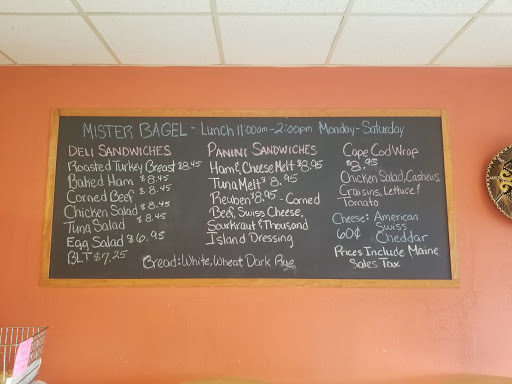 MISTER BAGEL - Lunch 11:00am - 2:00pm Monday - Saturday
DELI SANDWICHES
Roasted Turkey Breast $8.45
Baked Ham $8.45
Corned Beef $8.45
Chicken Salad $8.45
Tuna Salad $8.45
Egg Salad $6.95
BLT $7.25
PANINI SANDWICHES
Ham & Cheese Melt $8.95
Tuna Melt $8.95
Reuben $8.95 - Corned
Beef, Swiss Cheese,
Sourkraut & Thousand
Island Dressing
Bread: White, Wheat Dark Rye
Cape Cod Wrap
$8.95
Chicken Salad, Cashews
Craisins, Lettuce &
Tomato
Cheese: American
60¢ Swiss
Cheddar
Prices Include Maine
Sales Tax